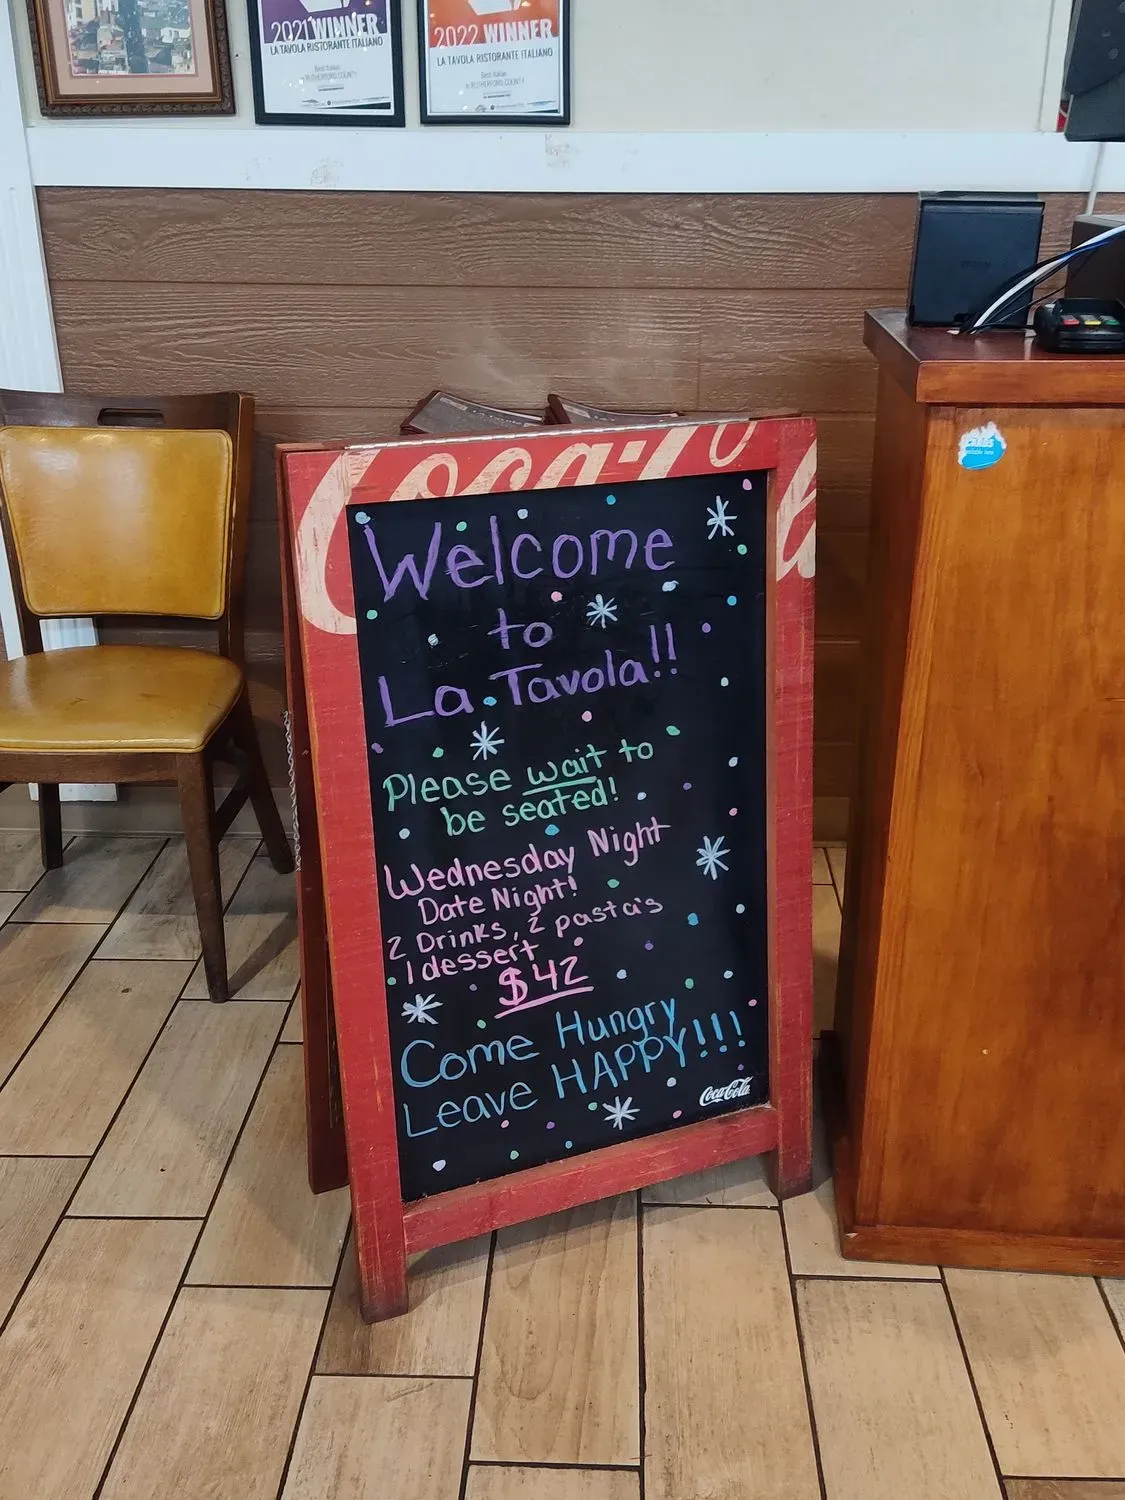 2021 WINNER
LA TAVOLA RISTORANTE ITALIANO
Best Italian
in RUTHERFORD COUNTY
2022 WINNER
LA TAVOLA RISTORANTE ITALIANO
Best Italian
in RUTHERFORD COUNTY
Coca-Co
Welcome
to
La Tavola!!
Please wait to
be seated!
Wednesday Night
Date Night!
2 Drinks, 2 pasta's
1 dessert
$42
Come Hungry
Leave HAPPY!!!
Coca-Cola
CARDS